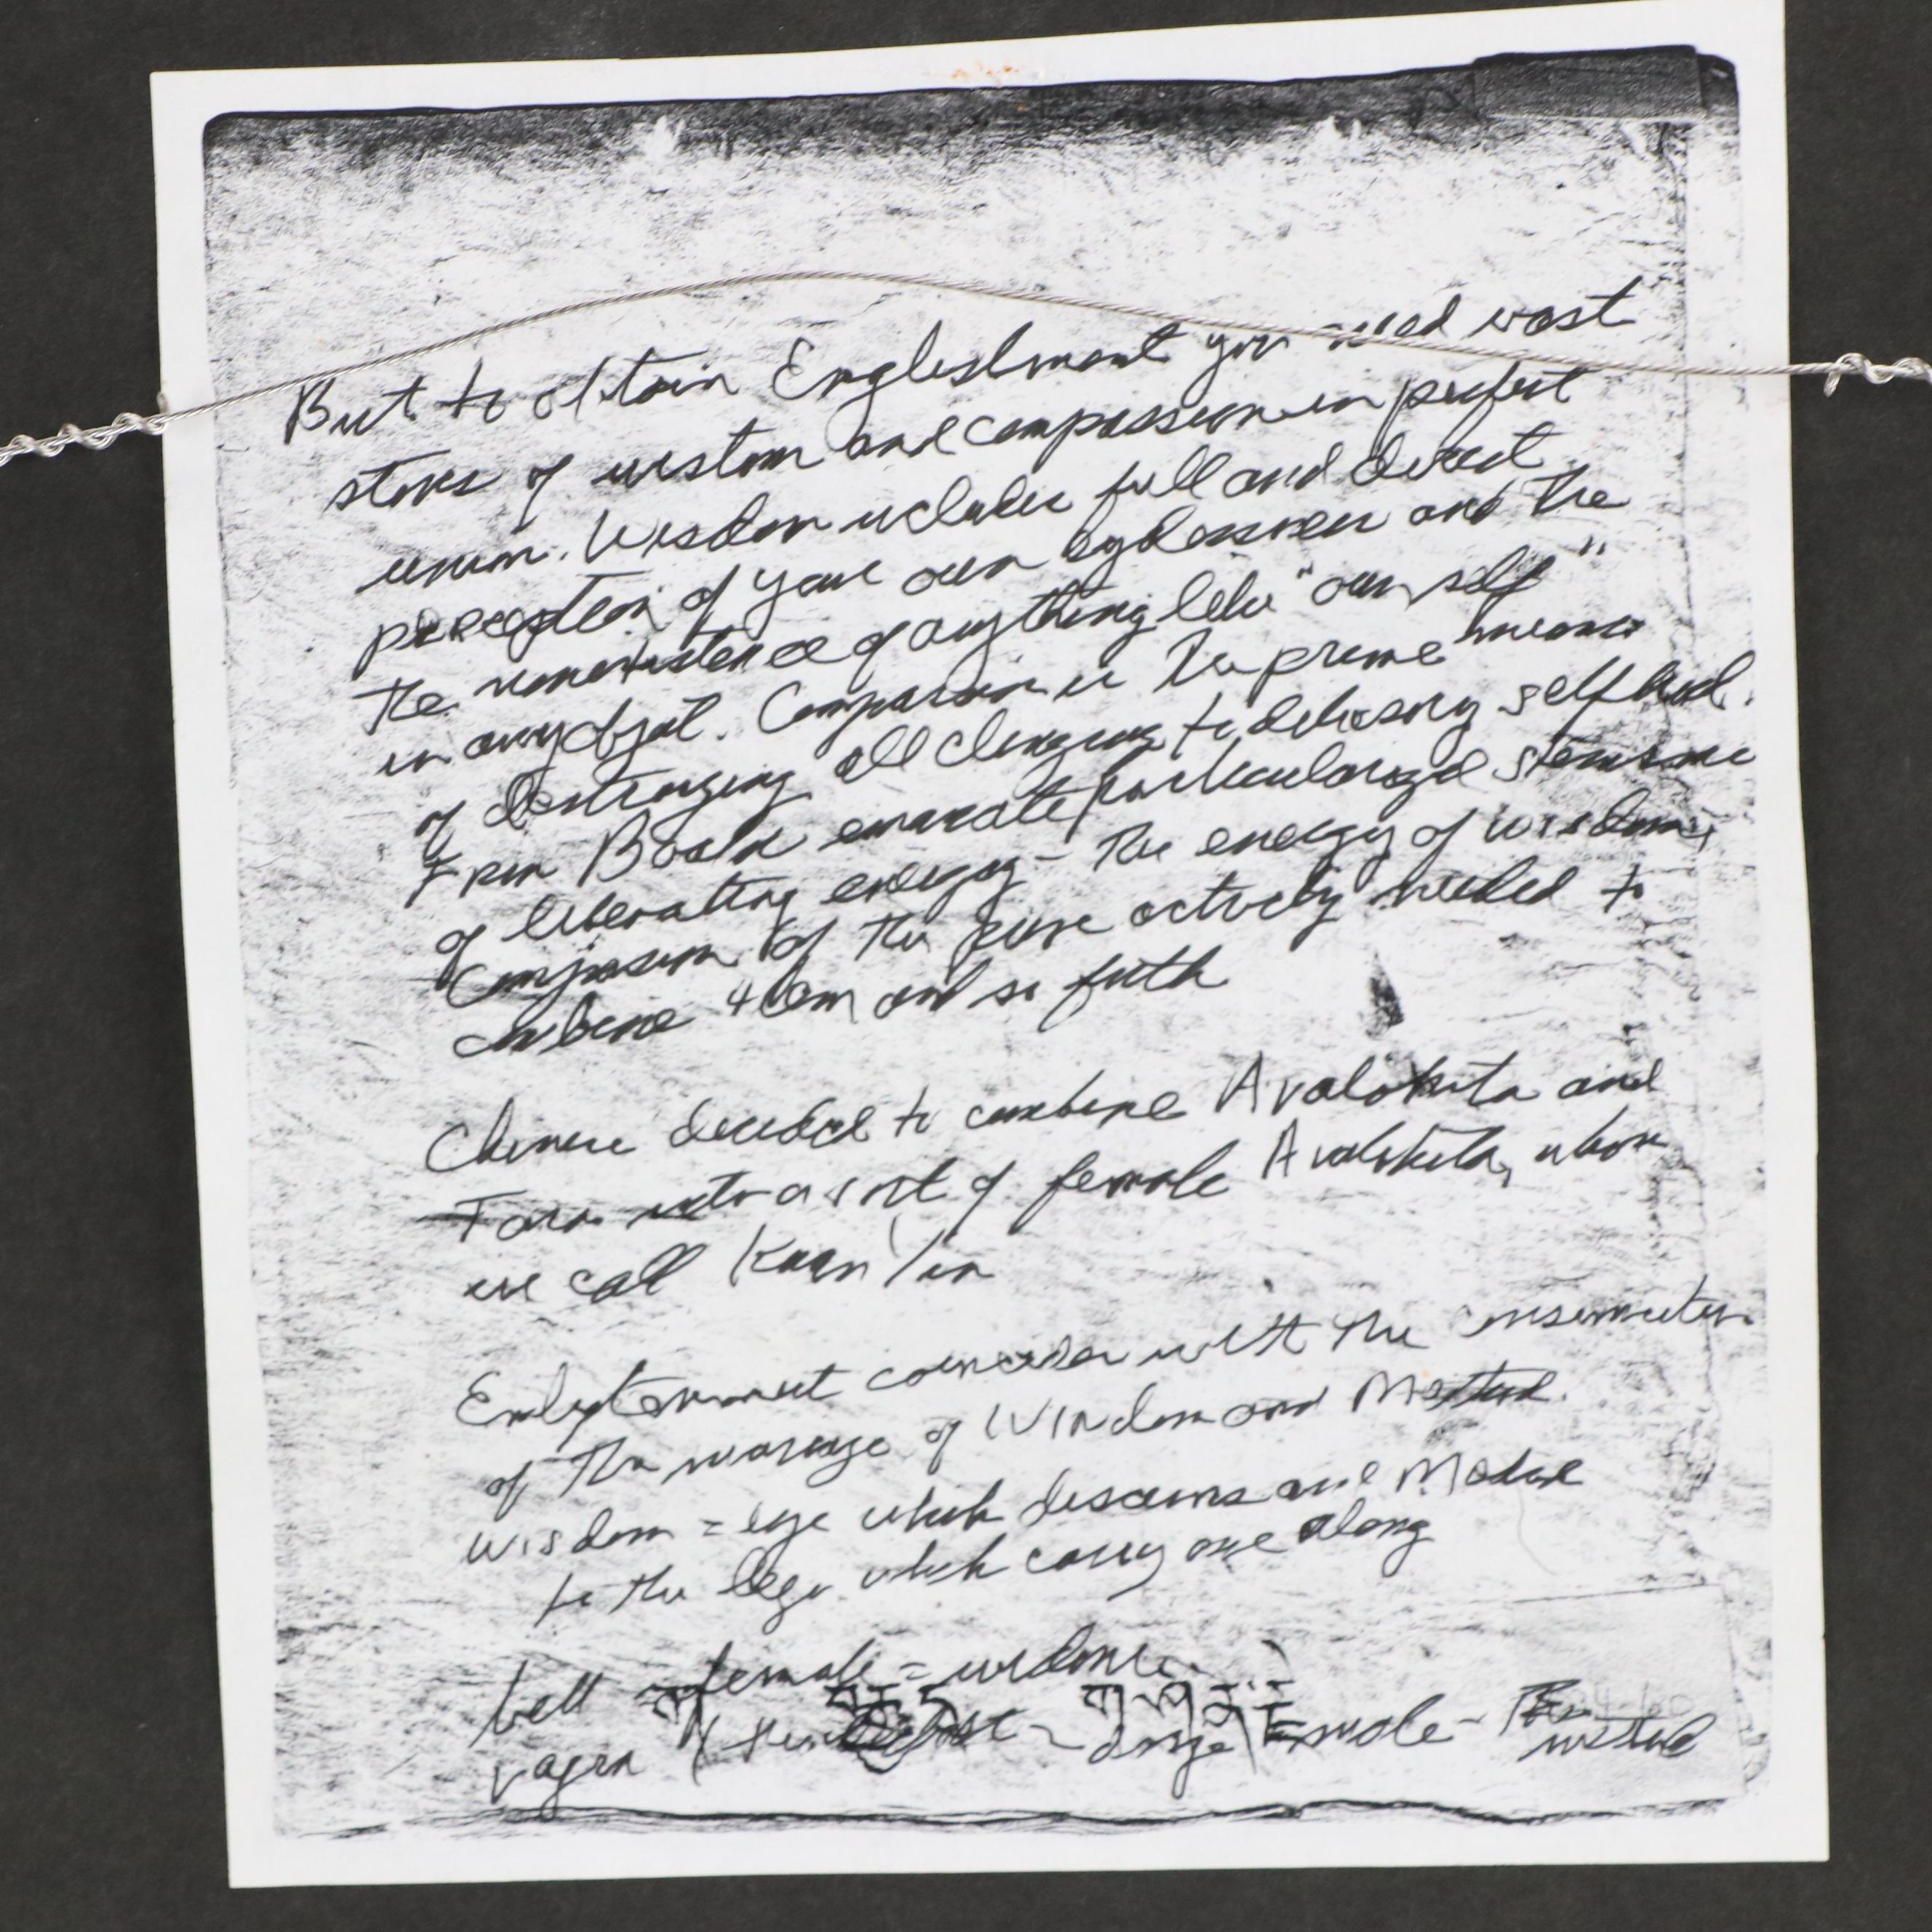 But to obtain Englishment you need vast
stores of wisdom and compassion in perfect
union. Wisdom includes full and direct
perception of your own egolessness and the
the nonexistence of anything like "own self"
in any object. Compassion is the prime means
of destroying all clinging to delusory selfhood.
From Bodhi emanate particularized streams
of liberating energy - the energy of wisdom,
compassion, of the pure activity needed to
combine them and so forth
Chinese decided to combine Avalokita and
Tara into a sort of female Avalokita, whom
we call Kuan Yin
Enlightenment coincides with the consummation
of the marriage of Wisdom and Method.
wisdom = eye which discerns and Method
to the legs which carry one along
bell = female = wisdom
vajra (thunderbolt - dorje) = male - method